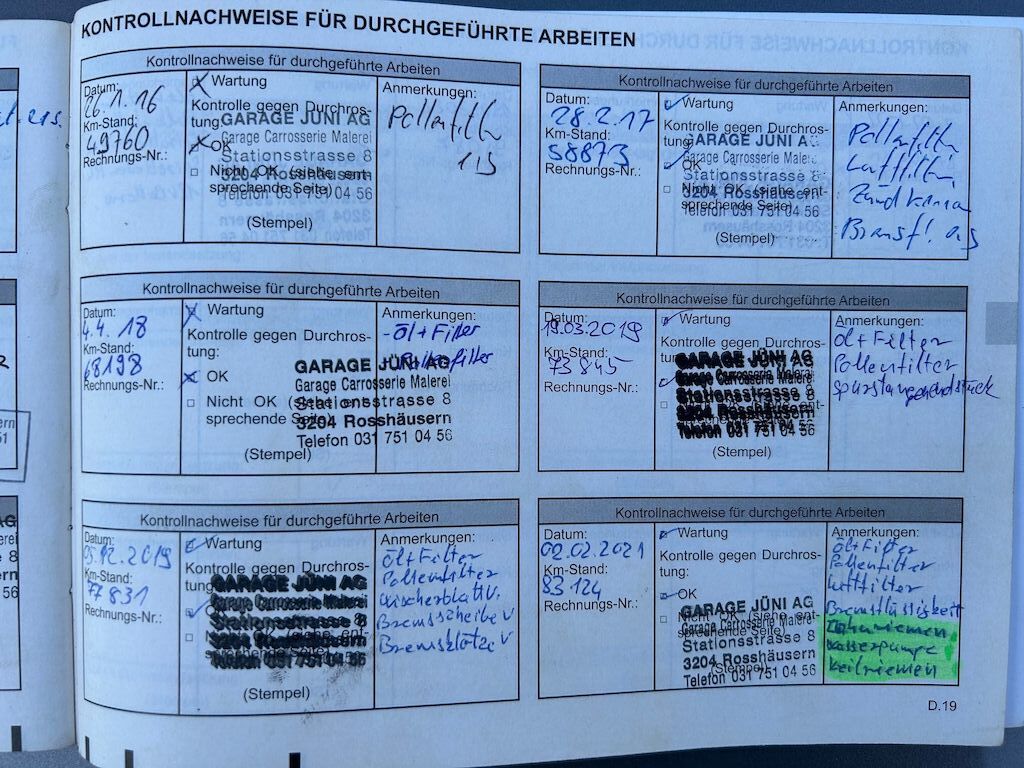 KONTROLLNACHWEISE FÜR DURCHGEFÜHRTE ARBEITEN
Kontrollnachweise für durchgeführte Arbeiten
Datum:
26.1.16
Km-Stand:
49760
Rechnungs-Nr.:
Wartung
Kontrolle gegen Durchros-
tung:
OK
Nicht OK (siehe ent-
sprechende Seite)
GARAGE JÜNI AG
Garage Carrosserie Malerei
Stationsstrasse 8
3204 Rosshäusern
Telefon 031 751 04 56
(Stempel)
Anmerkungen:
Pollenfilter
Kontrollnachweise für durchgeführte Arbeiten
Datum:
28.2.17
Km-Stand:
58873
Rechnungs-Nr.:
Wartung
Kontrolle gegen Durchros-
tung:
OK
Nicht OK (siehe ent-
sprechende Seite)
GARAGE JÜNI AG
Garage Carrosserie Malerei
Stationsstrasse 8
3204 Rosshäusern
Telefon 031 751 04 56
(Stempel)
Anmerkungen:
Pollenfilter
Luftfilter
Bremsfl.
Kontrollnachweise für durchgeführte Arbeiten
Datum:
4.4.18
Km-Stand:
68198
Rechnungs-Nr.:
Wartung
Kontrolle gegen Durchros-
tung:
OK
Nicht OK (siehe ent-
sprechende Seite)
GARAGE JÜNI AG
Garage Carrosserie Malerei
Stationsstrasse 8
3204 Rosshäusern
Telefon 031 751 04 56
(Stempel)
Anmerkungen:
- Öl+Filter
Kontrollnachweise für durchgeführte Arbeiten
Datum:
19.03.2019
Km-Stand:
73845
Rechnungs-Nr.:
Wartung
Kontrolle gegen Durchros-
tung:
GARAGE JÜNI AG
Garage Carrosserie Malerei
Stationsstrasse 8
3204 Rosshäusern
Telefon 031 751 04 56
(Stempel)
Anmerkungen:
Öl+Filter
Pollenfilter
Kontrollnachweise für durchgeführte Arbeiten
Datum:
05.12.2019
Km-Stand:
77831
Rechnungs-Nr.:
Wartung
Kontrolle gegen Durchros-
tung:
GARAGE JÜNI AG
Garage Carrosserie Malerei
Stationsstrasse 8
3204 Rosshäusern
Telefon 031 751 04 56
(Stempel)
Anmerkungen:
Öl+Filter
Pollenfilter
Wischerblatt V.
Bremsscheibe V
Bremsklötze V
Kontrollnachweise für durchgeführte Arbeiten
Datum:
02.02.2021
Km-Stand:
83124
Rechnungs-Nr.:
Wartung
Kontrolle gegen Durchros-
tung:
OK
Nicht OK (siehe ent-
sprechende Seite)
GARAGE JÜNI AG
Garage Carrosserie Malerei
Stationsstrasse 8
3204 Rosshäusern
(Stempel)
Telefon 031 751 04 56
Anmerkungen:
Öl+Filter
Pollenfilter
Luftfilter
Bremsflüssigkeit
Zahnriemen
Wasserpumpe
Keilriemen
D.19